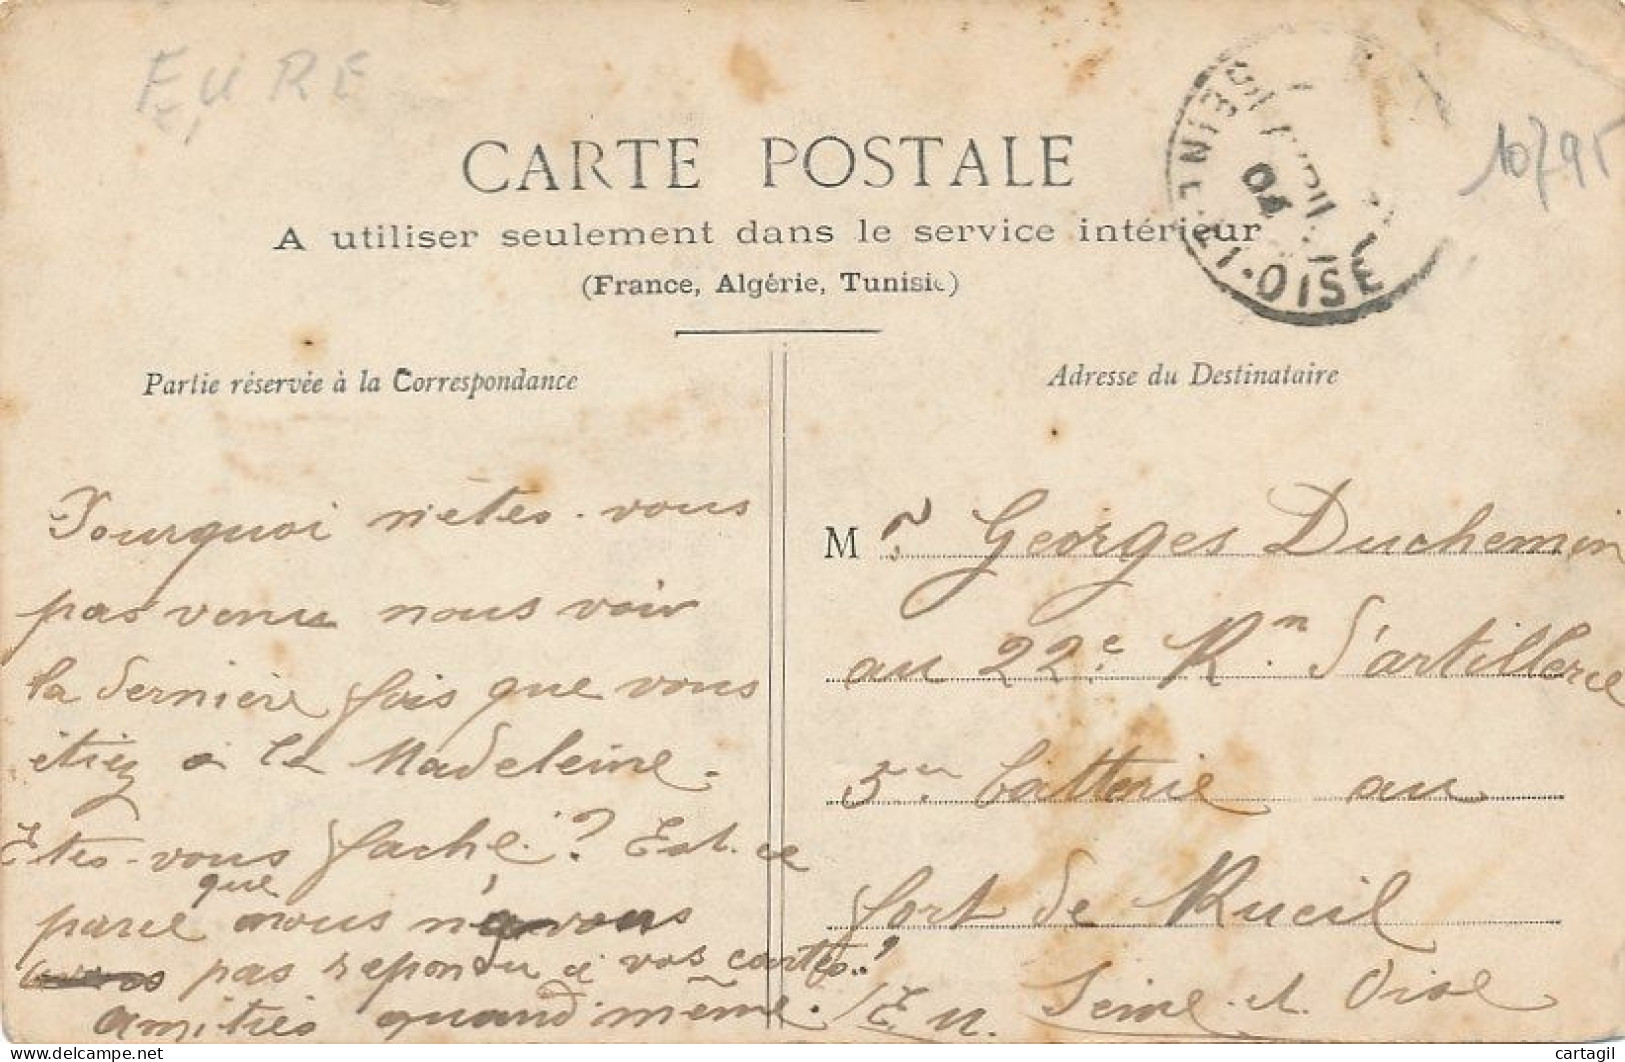 EURE
10795
CARTE POSTALE
A utiliser seulement dans le service intérieur
(France, Algérie, Tunisie)
SEINE-ET-OISE
04
Partie réservée à la Correspondance
Pourquoi n'etes-vous
pas venu nous voir
la dernière fois que vous
étiez à la Madeleine.
Etes-vous faché? Est-ce
parce que nous n'avons
pas repondu à vos cartes?
amitiés quand même.
Adresse du Destinataire
Mr Georges Duchemin
au 22e Rn d'artillerie
5e batterie au
fort de Rueil
En Seine et Oise
cartagil
delcampe.net